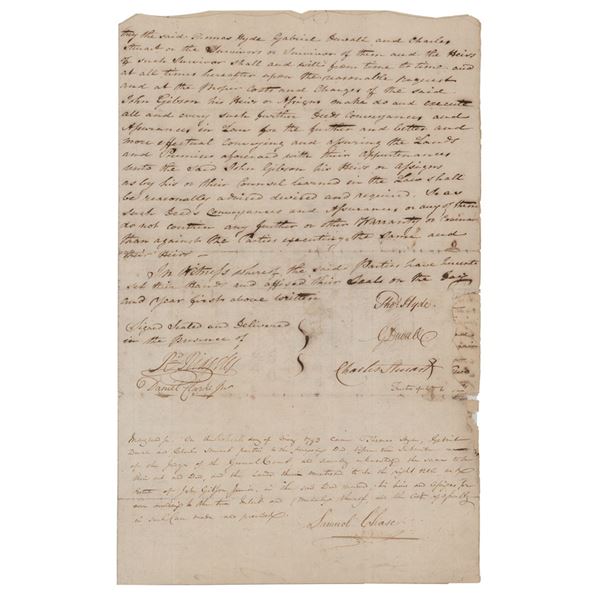 they the said Thomas Hyde Gabriel Duvall and Charles
Stuart or the Survivors or Survivor of them and the Heirs
of such Survivor shall and will from time to time and
at all times hereafter upon the reasonable Request
and at the Proper Costs and Charges of the said
John Gibson his Heirs or Assigns make do and execute
all and every such further Deeds Conveyances and
Assurances in Law for the further and better and
more effectual Conveying and assuring the Lands
and Premises aforesaid with their Appurtenances
unto the Said John Gibson his Heirs or Assigns
as by his or their Counsel learned in the Law shall
be reasonably advised devised and required. So as
such Deeds Conveyances and Assurances or any of them
do not contain any further or other Warranty or
than against the Parties executing the Same and
their Heirs —
In Witness whereof the said Parties have hereunto
set their Hands and affixed their Seals on the Day
and Year first above written
Thos. Hyde.
Signed Sealed and Delivered
in the Presence of
G Duvall
Rd Ridgely
Charles Steuart
Daniel Clarke Jnr
Maryland ss. On the day of May 1793 Came Thomas Hyde, Gabriel
Duvall and Charles Steuart parties to the foregoing Deed before the Subscriber
of the Judges of the General Court and severally acknowledged the same to be
their act and Deed, and the Lands therein mentioned to be the right title and
estate of John Gibson, in the said Deed named, his heirs and assigns for
ever according to the true intent and meaning thereof, and the Acts of Assembly
in such Case made and provided.
Samuel Chase